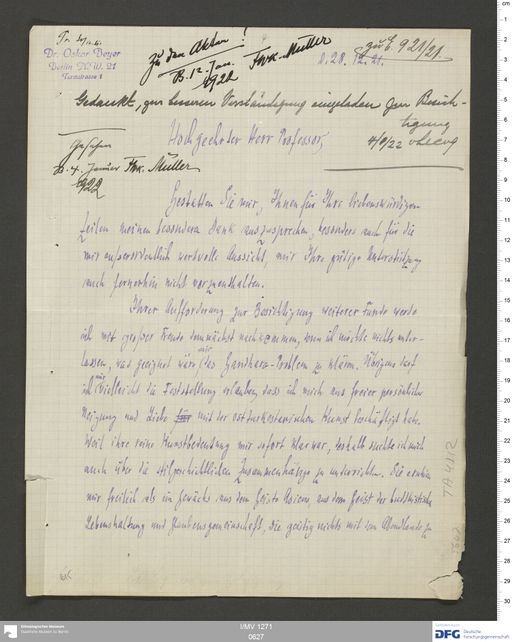 Dr. Oskar Beyer
Berlin N.W. 21
Turmstrasse 1
Zu den Akten!
B. 12. Jan. 1922
FWK. Müller
zu E. 921/21.
B. 28. 12. 21.
Gedankt, zur besseren Verständigung eingeladen zur Besich-
tigung
4/1/22
Gesehen
B. 4. Januar FWK. Müller
1922
Hochgeehrter Herr Professor,
Gestatten Sie mir, Ihnen für Ihre liebenswürdigen
Zeilen meinen besonderen Dank auszusprechen, besonders auch für die
mir außerordentlich wertvolle Aussicht, mir Ihre gütige Unterstützung
auch fernerhin nicht vorzuenthalten.
Ihrer Aufforderung zur Besichtigung weiterer Funde werde
ich mit großer Freude demnächst nachkommen, denn ich möchte nichts unter-
lassen, was geeignet wäre, mir das Gandhara-Problem zu klären. Übrigens darf
ich mir vielleicht die Feststellung erlauben, dass ich mich aus freier persönlicher
Neigung und Liebe mit der ostturkestanischen Kunst beschäftigt habe.
Weil ihre reine Kunstbedeutung mir sofort klar war, deshalb suchte ich mich
auch über die stilgeschichtlichen Zusammenhänge zu unterrichten. Sie erschien
mir freilich als ein Gewächs aus dem Geiste Asiens, aus dem Geist der buddhistischen
Lebenshaltung und Glaubensgemeinschaft, die geistig nichts mit dem Abendlande zu
TA 4912
Ethnologisches Museum
Staatliche Museen zu Berlin
I/MV 1271
0627
DFG Deutsche
Forschungsgemeinschaft
cm
1
2
3
4
5
6
7
8
9
10
11
12
13
14
15
16
17
18
19
20
21
22
23
24
25
26
27
28
29
30